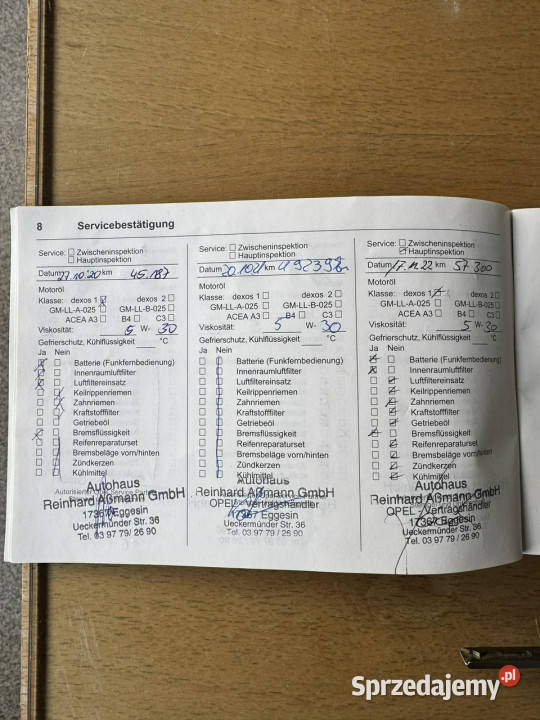 8 Servicebestätigung
Service: Zwischeninspektion
Hauptinspektion
Datum 27.10.'20 km 45.187
Motoröl
Klasse: dexos 1 dexos 2
GM-LL-A-025 GM-LL-B-025
ACEA A3 B4 C3
Viskosität: 5 W- 30
Gefrierschutz, Kühlflüssigkeit °C
Ja Nein
Batterie (Funkfernbedienung)
Innenraumluftfilter
Luftfiltereinsatz
Keilrippenriemen
Zahnriemen
Kraftstofffilter
Getriebeöl
Bremsflüssigkeit
Reifenreparaturset
Bremsbeläge vorn/hinten
Zündkerzen
Kühlmittel
Autohaus
Reinhard Aßmann GmbH
17367 Eggesin
Ueckermünder Str. 36
Tel. 03 97 79 / 26 90
Service: Zwischeninspektion
Hauptinspektion
Datum km
Motoröl
Klasse: dexos 1 dexos 2
GM-LL-A-025 GM-LL-B-025
ACEA A3 B4 C3
Viskosität: 5 W- 30
Gefrierschutz, Kühlflüssigkeit °C
Ja Nein
Batterie (Funkfernbedienung)
Innenraumluftfilter
Luftfiltereinsatz
Keilrippenriemen
Zahnriemen
Kraftstofffilter
Getriebeöl
Bremsflüssigkeit
Reifenreparaturset
Bremsbeläge vorn/hinten
Zündkerzen
Kühlmittel
Autohaus
Reinhard Aßmann GmbH
OPEL - Vertragshändler
17367 Eggesin
Ueckermünder Str. 36
Tel. 03 97 79 / 26 90
Service: Zwischeninspektion
Hauptinspektion
Datum 17.11.22 km 57 300
Motoröl
Klasse: dexos 1 dexos 2
GM-LL-A-025 GM-LL-B-025
ACEA A3 B4 C3
Viskosität: 5 W- 30
Gefrierschutz, Kühlflüssigkeit °C
Ja Nein
Batterie (Funkfernbedienung)
Innenraumluftfilter
Luftfiltereinsatz
Keilrippenriemen
Zahnriemen
Kraftstofffilter
Getriebeöl
Bremsflüssigkeit
Reifenreparaturset
Bremsbeläge vorn/hinten
Zündkerzen
Kühlmittel
Autohaus
Reinhard Aßmann GmbH
OPEL - Vertragshändler
17367 Eggesin
Ueckermünder Str. 36
Tel. 03 97 79 / 26 90
Sprzedajemy.pl